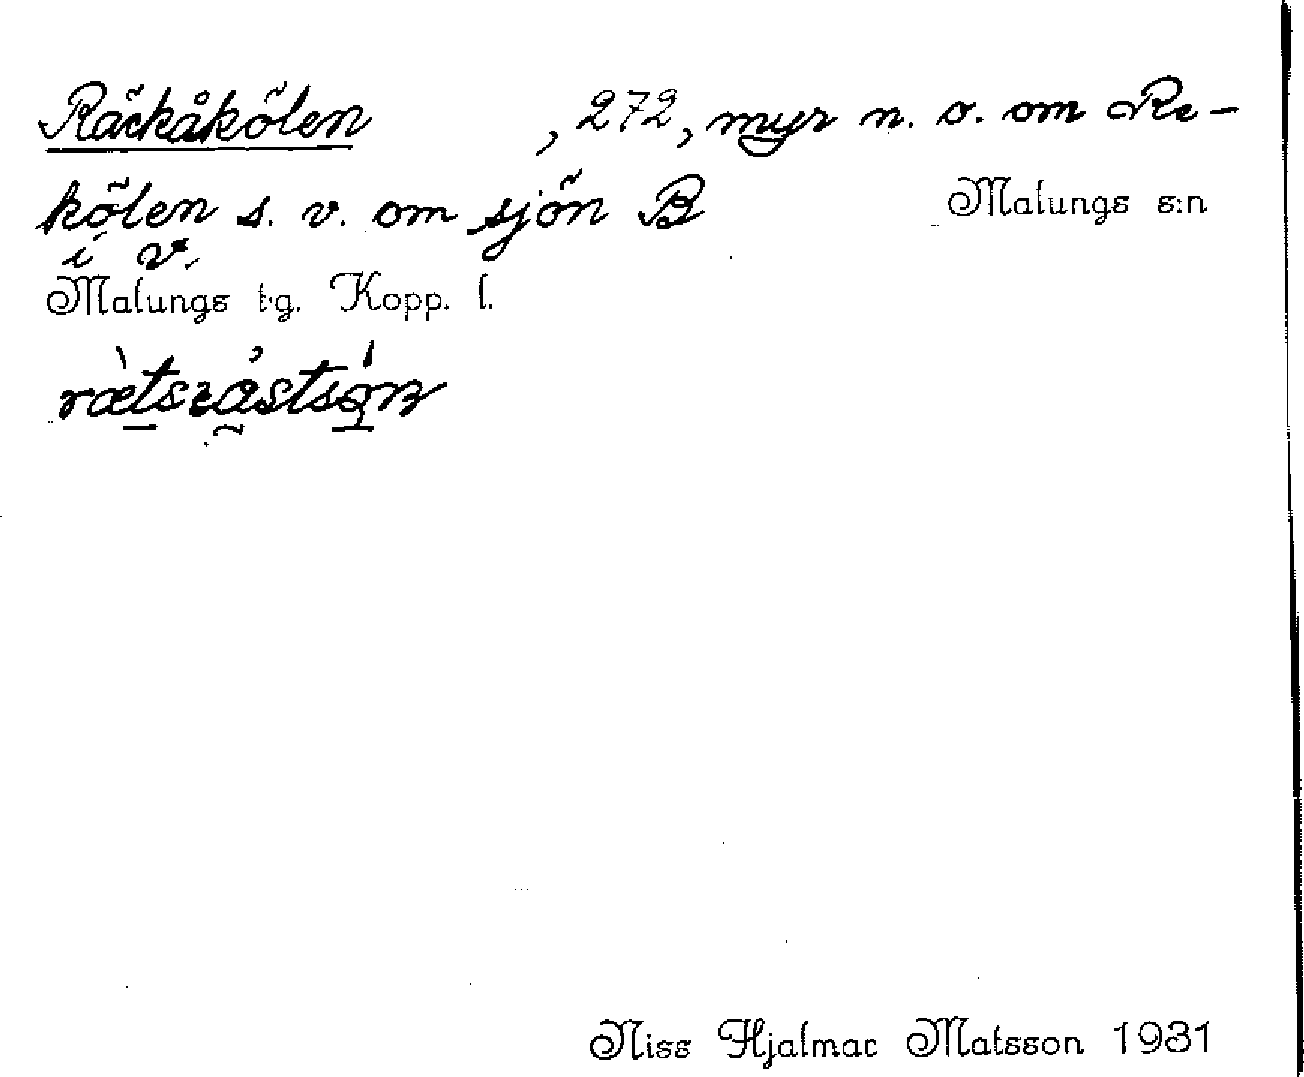 Räckåkölen , 272, myr n. o. om Re-
kölen s. v. om sjön B Malungs s:n
i v.
Malungs tg. Kopp. l.
Niss Hjalmar Matsson 1931